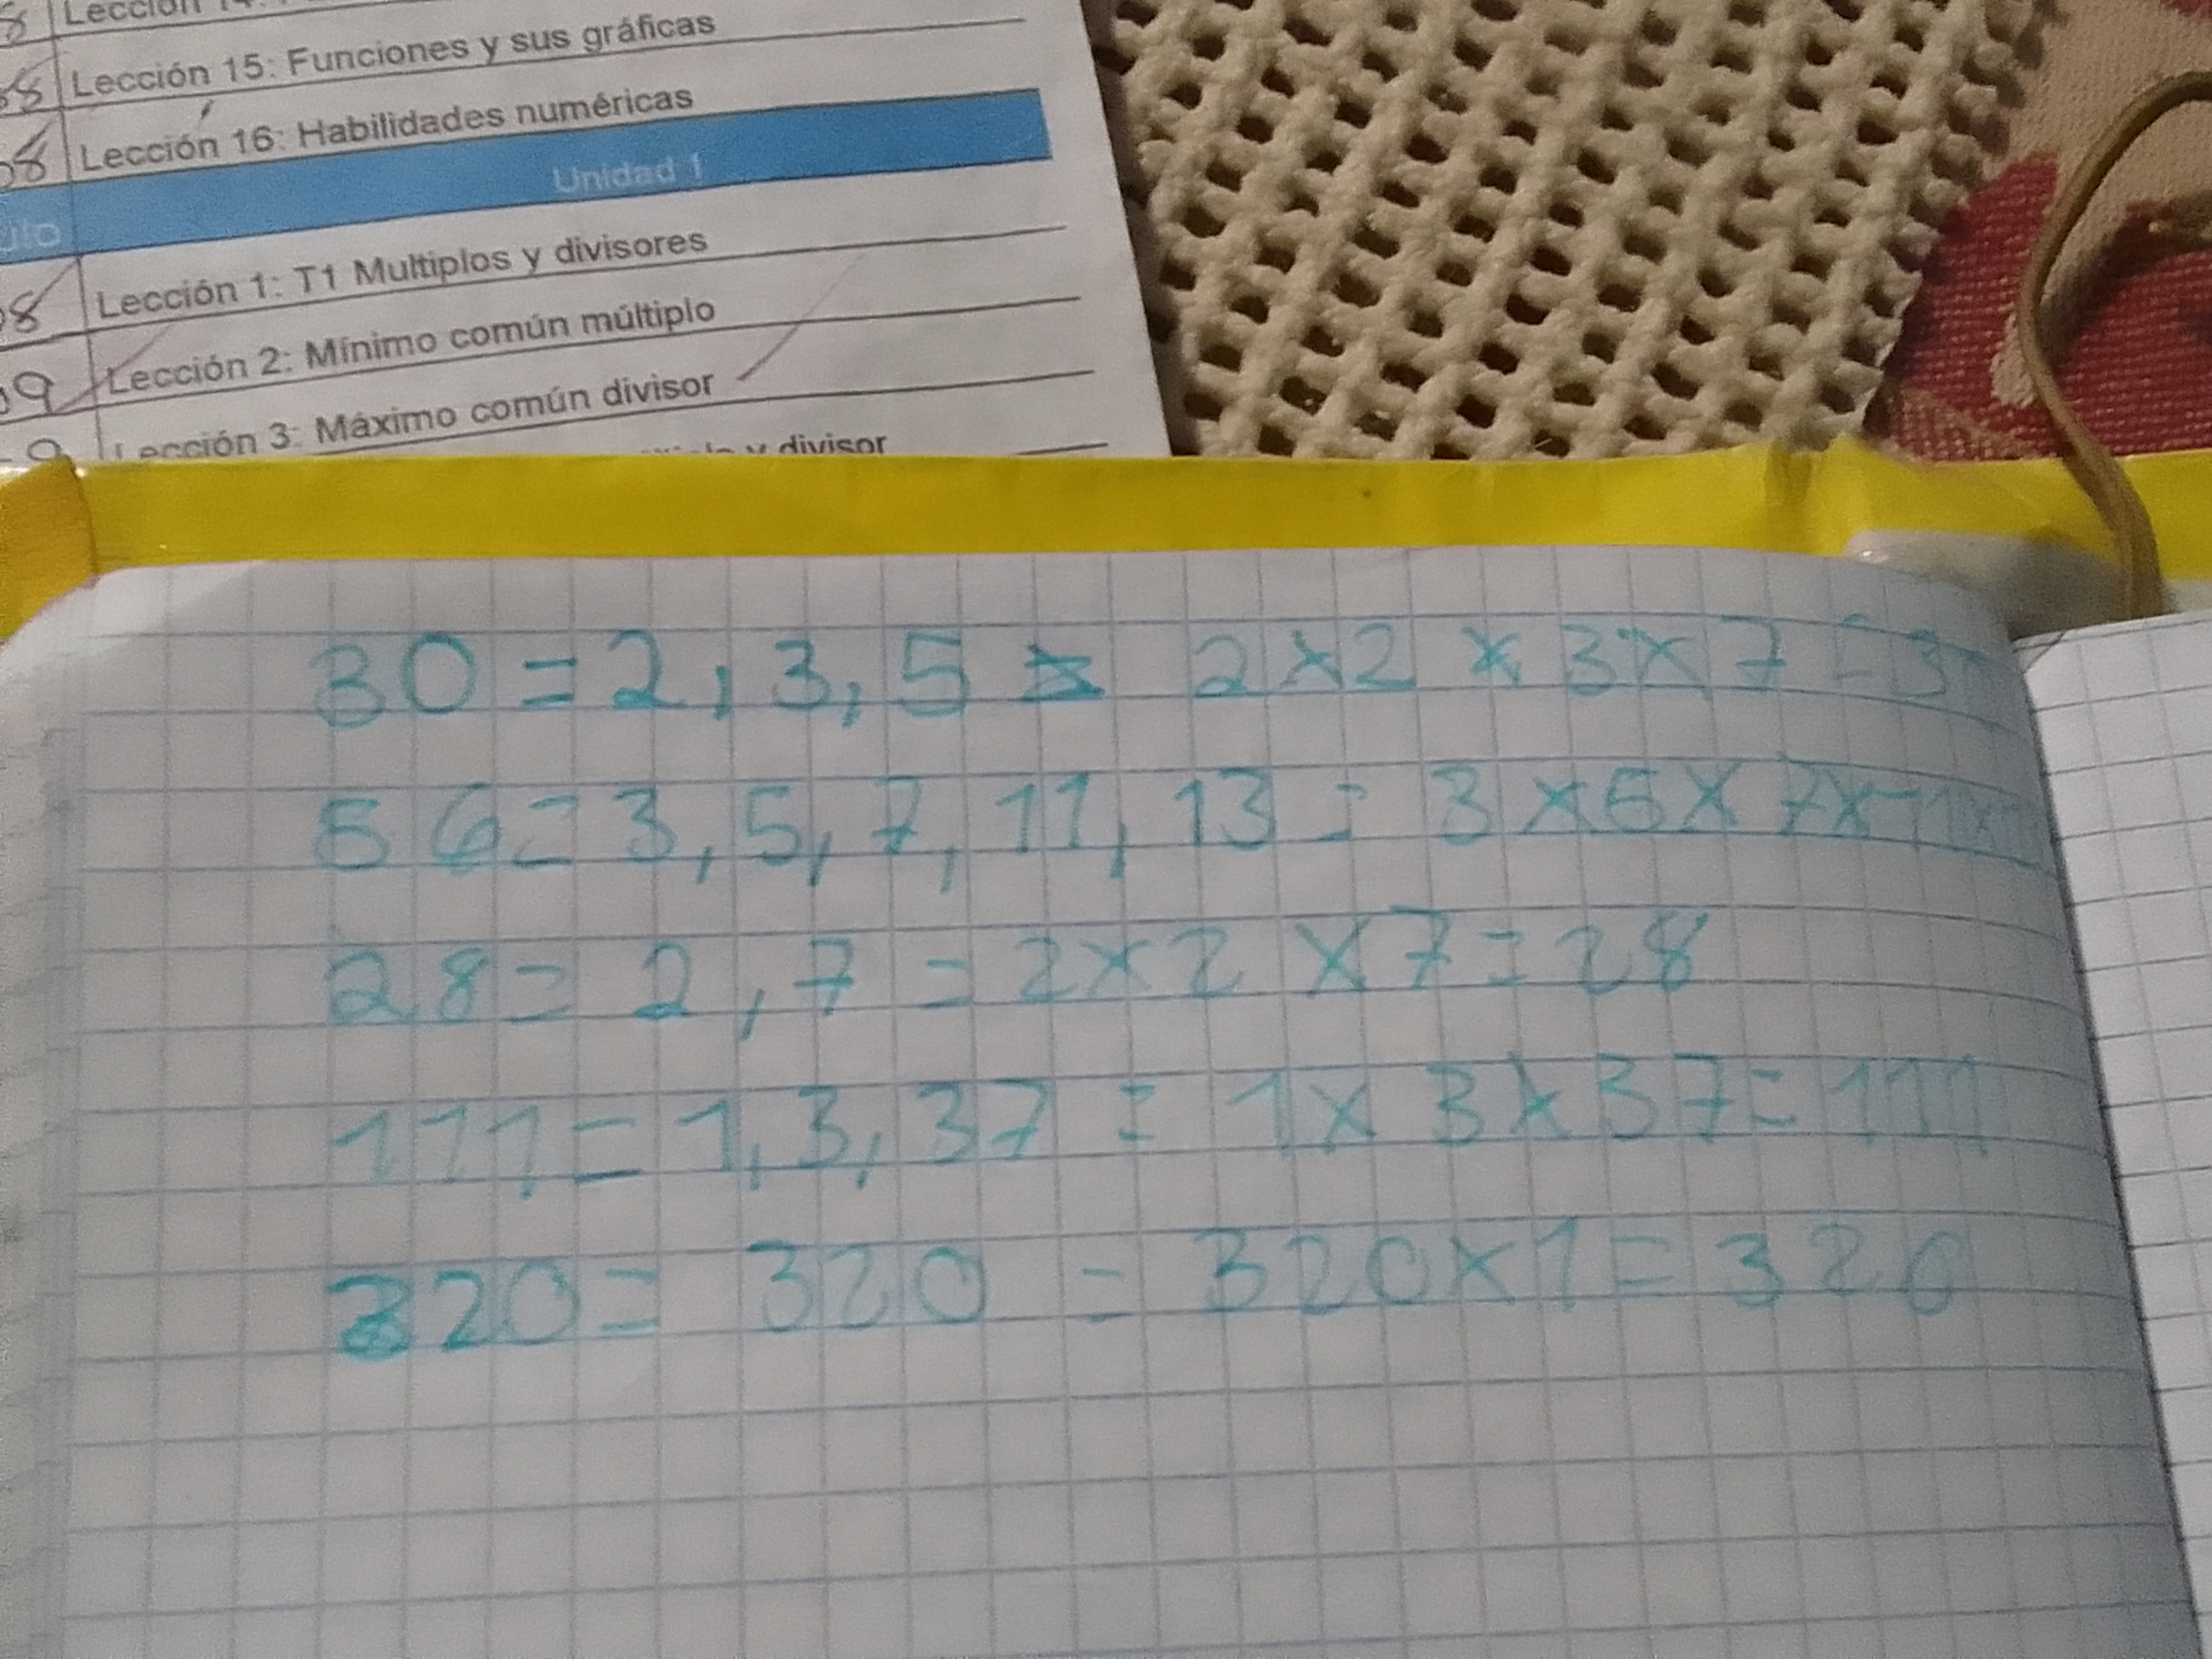 8 Lección
08 Lección 15: Funciones y sus gráficas
08 Lección 16: Habilidades numéricas
Unidad 1
08 Lección 1: T1 Multiplos y divisores
09 Lección 2: Mínimo común múltiplo
Lección 3: Máximo común divisor
y divisor
30 = 2, 3, 5 = 2 x 2 x 3 x 7 = 3
56 = 3, 5, 7, 11, 13 = 3 x 5 x 7 x 11 x
28 = 2, 7 = 2 x 2 x 7 = 28
111 = 1, 3, 37 = 1 x 3 x 37 = 111
320 = 320 = 320 x 1 = 320